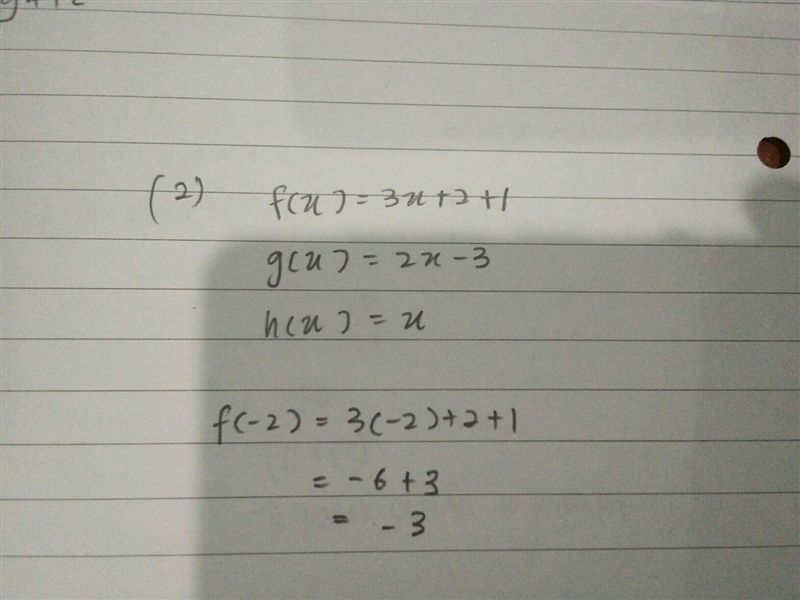 (2) f(x) = 3x+2+1
g(x) = 2x-3
h(x) = x
f(-2) = 3(-2)+2+1
= -6+3
= -3